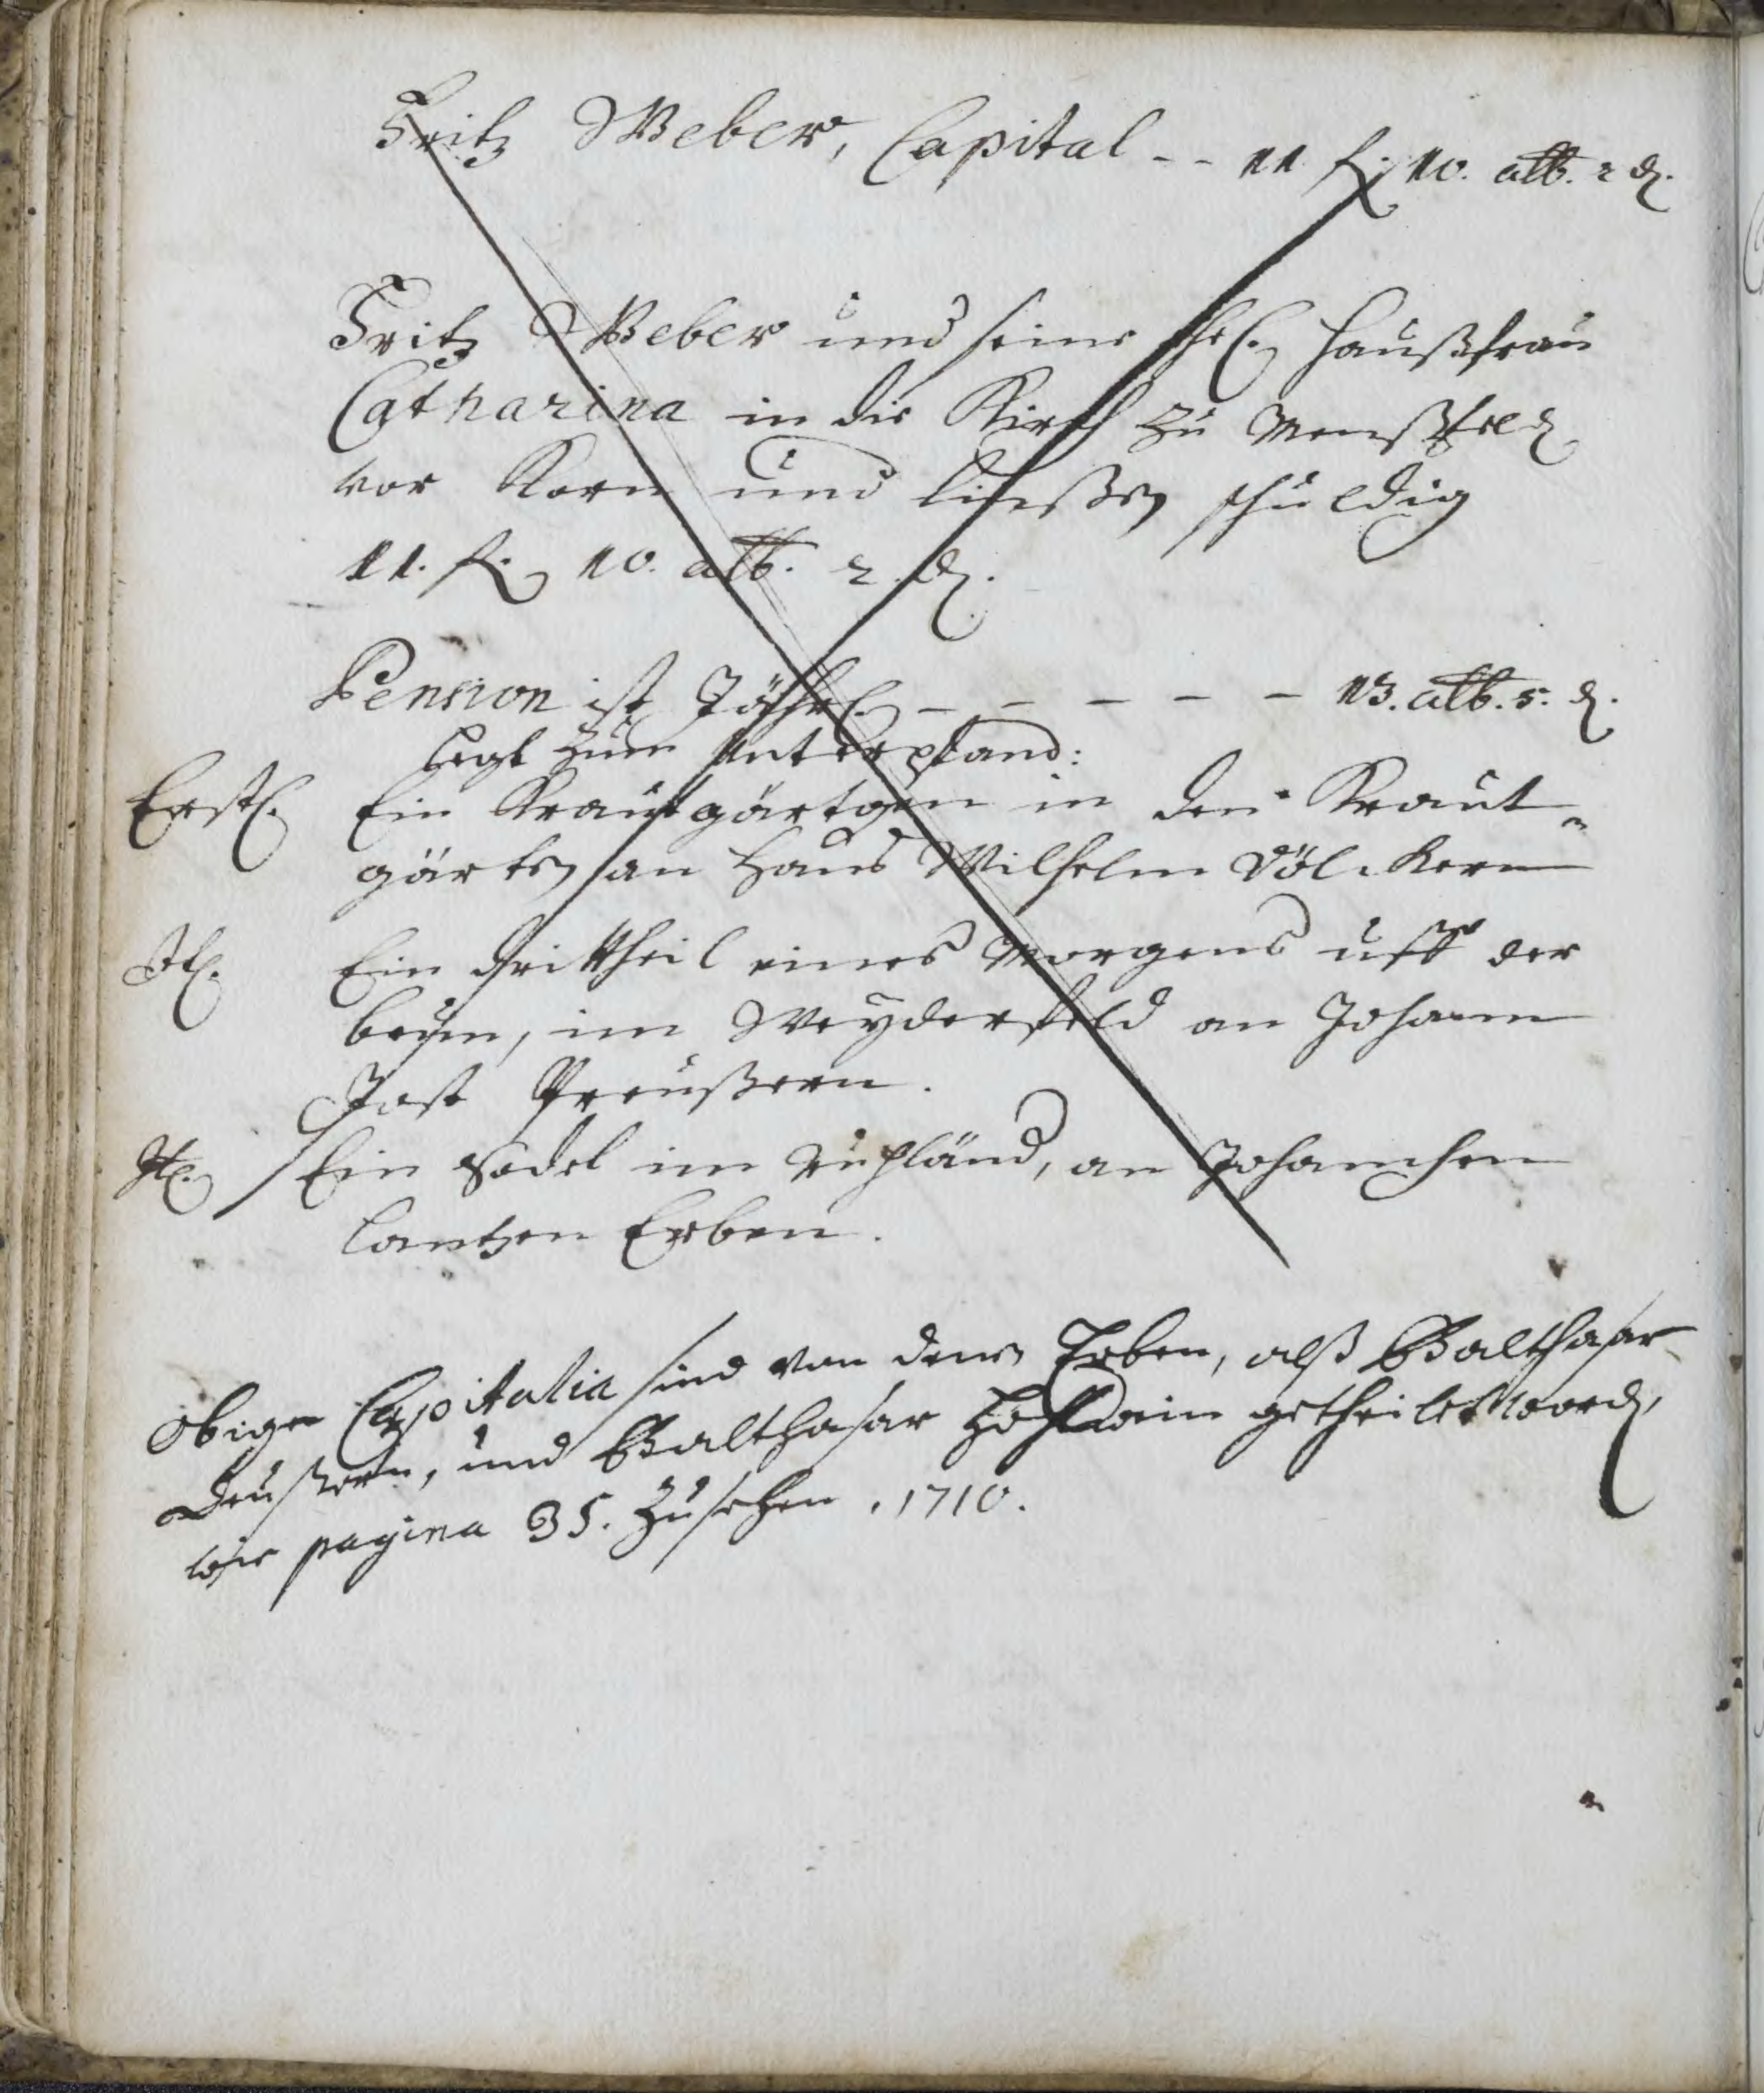 Fritz Weber, Capital -- 11 fl. 10. alb. 2 d.
Fritz Weber und seine ehel. Haußfrau
Catharina in die Kirch zu Menßfeld
vor Korn und linßen schuldig
11. fl. 10. alb. 2. d.
Pension ist Jährl. - - - - - 13. alb. 5. d.
legt zum Unterpfand:
Erstl. Ein Krautgärtgen in den Kraut-
gärten an Hans Wilhelm Völckern
It. Ein drittheil eines Morgens uff der
beyn, im Weyderfeld an Johann
Jost Preußern.
It. Ein Sadel im Ruhländ, an Johannchen
Lantzen Erben.
Obige Capitalia sind von denen Erben, alß Balthasar
Deußern, und Balthasar getheilet word,
wie pagina 35. zusehen. 1710.